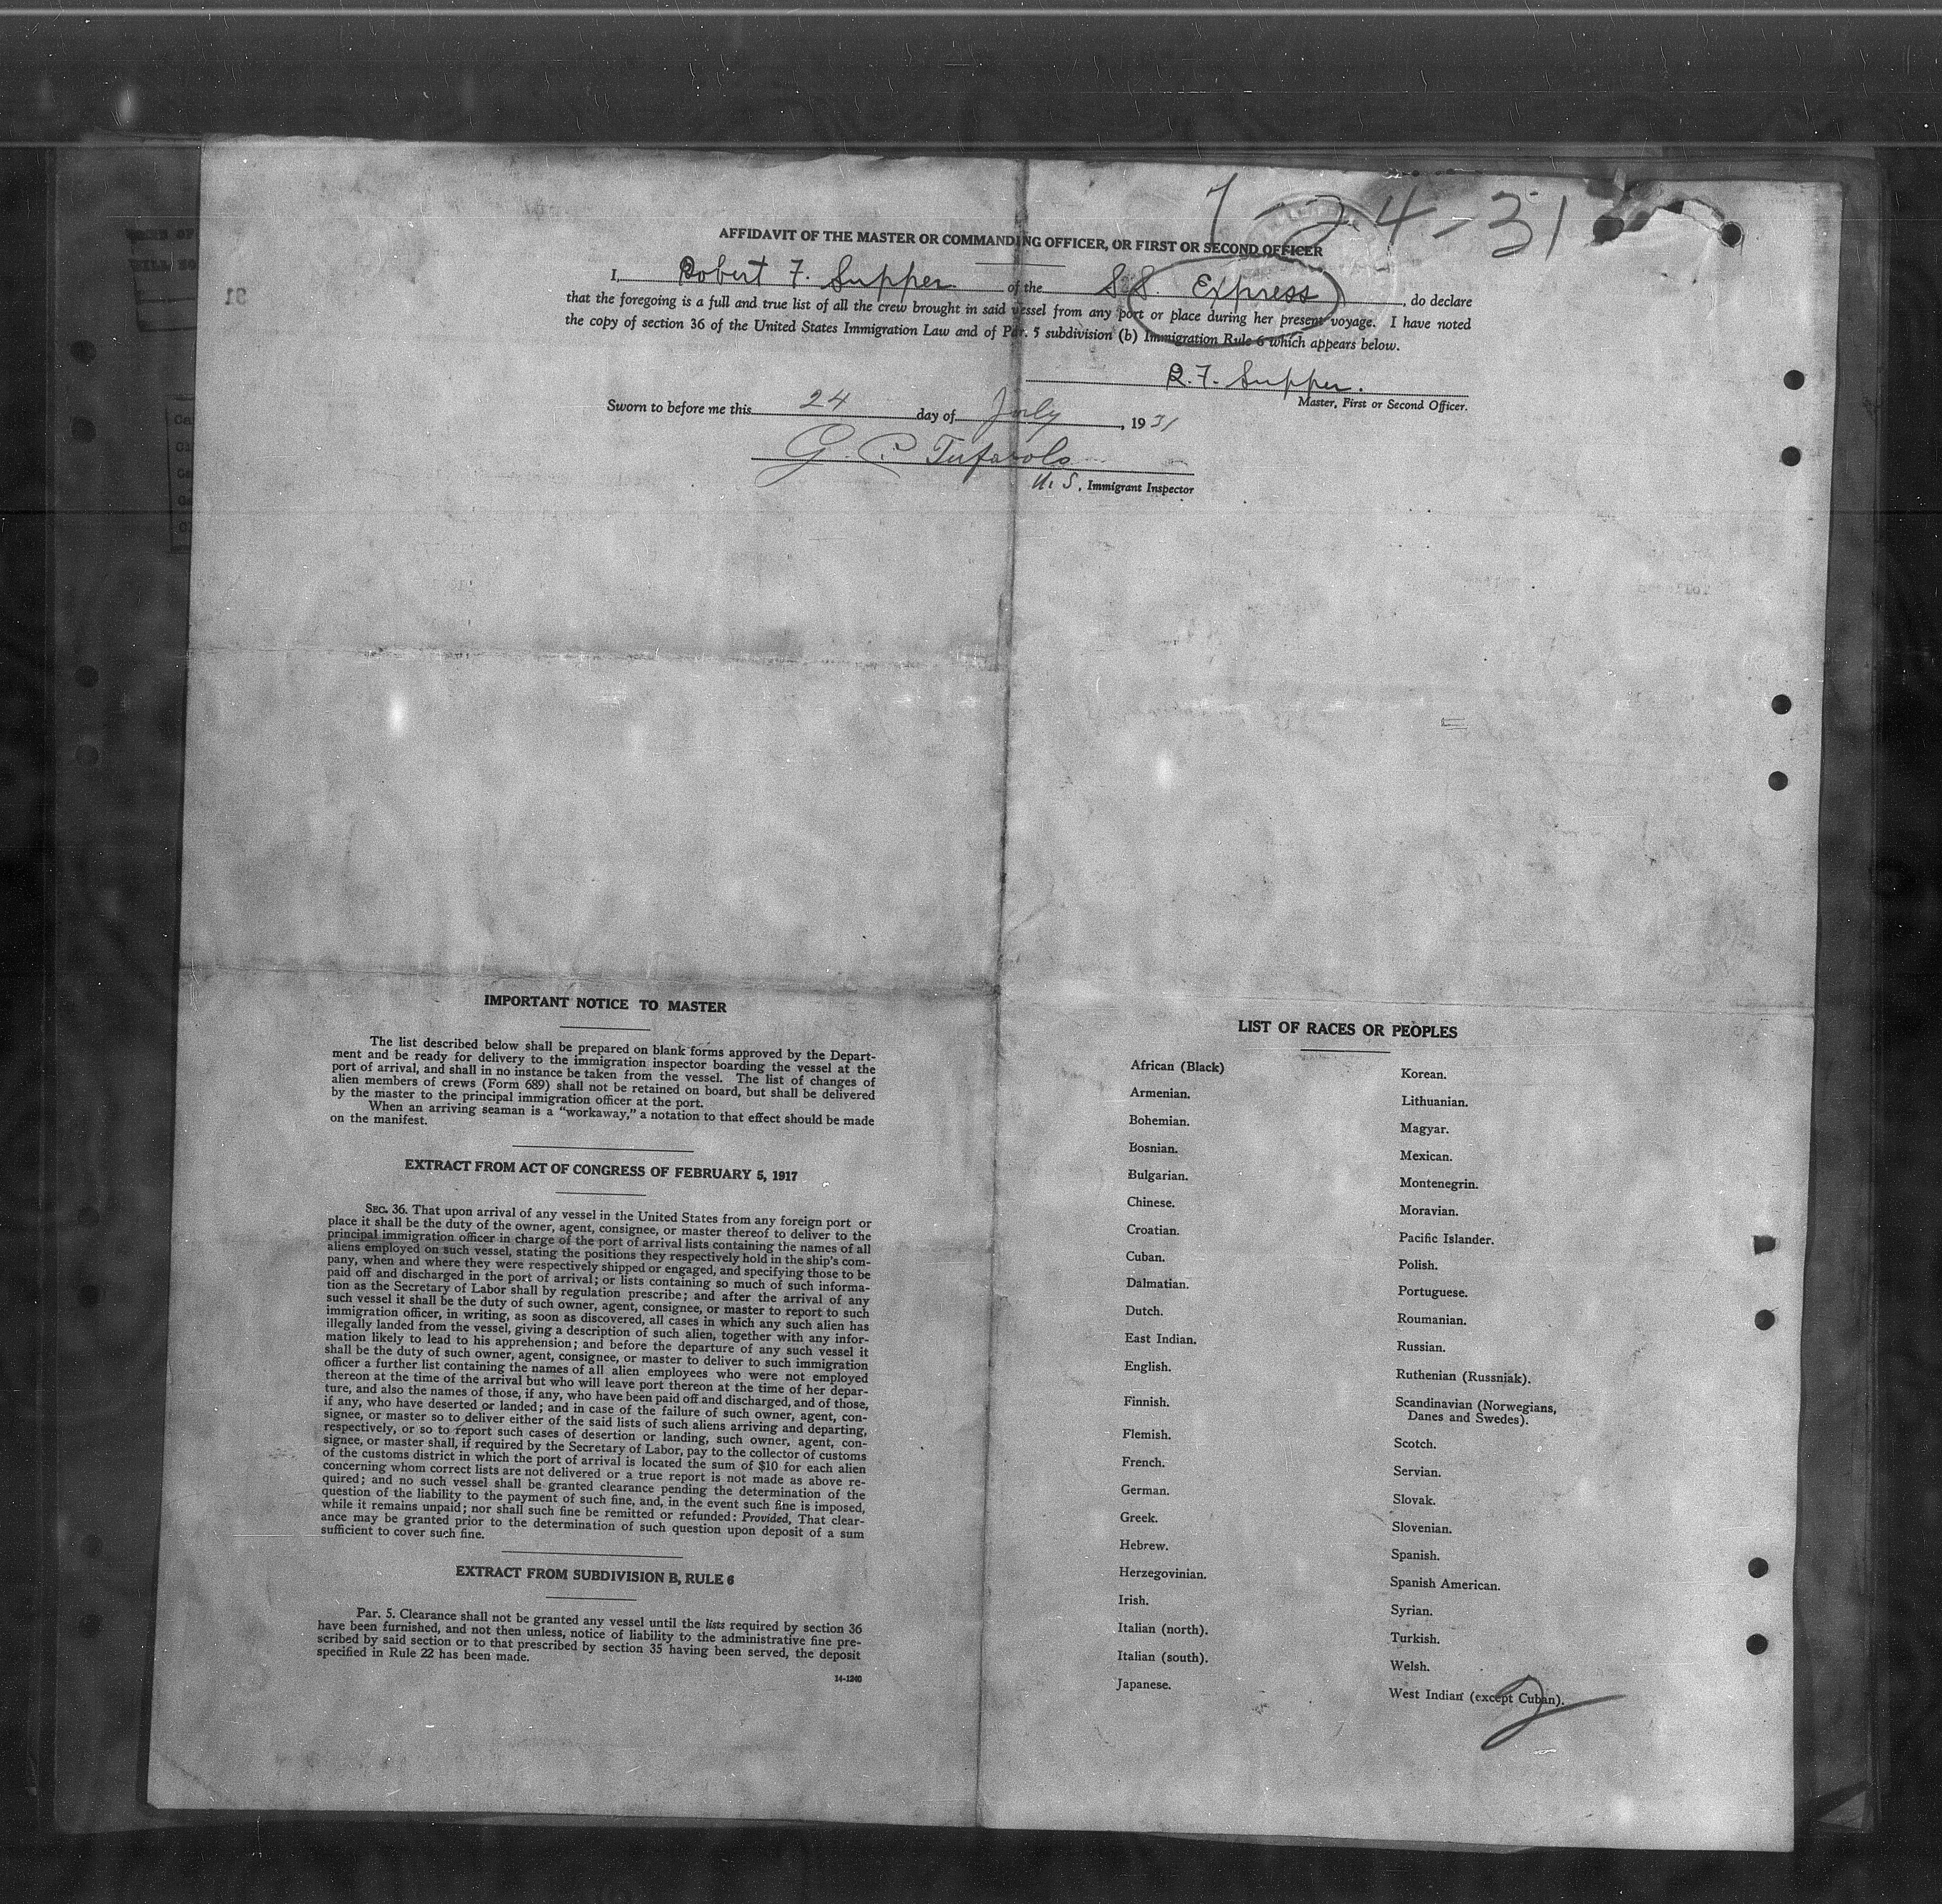 7-24-31
AFFIDAVIT OF THE MASTER OR COMMANDING OFFICER, OR FIRST OR SECOND OFFICER
I, Robert F. Supper of the SS. Express, do declare
that the foregoing is a full and true list of all the crew brought in said vessel from any port or place during her present voyage. I have noted
the copy of section 36 of the United States Immigration Law and of Par. 5 subdivision (b) Immigration Rule 6 which appears below.
R. F. Supper.
Master, First or Second Officer.
Sworn to before me this 24 day of July, 1931
G. C. Tufarolo
U. S. Immigrant Inspector
IMPORTANT NOTICE TO MASTER
The list described below shall be prepared on blank forms approved by the Depart-
ment and be ready for delivery to the immigration inspector boarding the vessel at the
port of arrival, and shall in no instance be taken from the vessel. The list of changes of
alien members of crews (Form 689) shall not be retained on board, but shall be delivered
by the master to the principal immigration officer at the port.
When an arriving seaman is a "workaway," a notation to that effect should be made
on the manifest.
EXTRACT FROM ACT OF CONGRESS OF FEBRUARY 5, 1917
SEC. 36. That upon arrival of any vessel in the United States from any foreign port or
place it shall be the duty of the owner, agent, consignee, or master thereof to deliver to the
principal immigration officer in charge of the port of arrival lists containing the names of all
aliens employed on such vessel, stating the positions they respectively hold in the ship's com-
pany, when and where they were respectively shipped or engaged, and specifying those to be
paid off and discharged in the port of arrival; or lists containing so much of such informa-
tion as the Secretary of Labor shall by regulation prescribe; and after the arrival of any
such vessel it shall be the duty of such owner, agent, consignee, or master to report to such
immigration officer, in writing, as soon as discovered, all cases in which any such alien has
illegally landed from the vessel, giving a description of such alien, together with any infor-
mation likely to lead to his apprehension; and before the departure of any such vessel it
shall be the duty of such owner, agent, consignee, or master to deliver to such immigration
officer a further list containing the names of all alien employees who were not employed
thereon at the time of the arrival but who will leave port thereon at the time of her depar-
ture, and also the names of those, if any, who have been paid off and discharged, and of those,
if any, who have deserted or landed; and in case of the failure of such owner, agent, con-
signee, or master so to deliver either of the said lists of such aliens arriving and departing,
respectively, or so to report such cases of desertion or landing, such owner, agent, con-
signee, or master shall, if required by the Secretary of Labor, pay to the collector of customs
of the customs district in which the port of arrival is located the sum of $10 for each alien
concerning whom correct lists are not delivered or a true report is not made as above re-
quired; and no such vessel shall be granted clearance pending the determination of the
question of the liability to the payment of such fine, and, in the event such fine is imposed,
while it remains unpaid; nor shall such fine be remitted or refunded: Provided, That clear-
ance may be granted prior to the determination of such question upon deposit of a sum
sufficient to cover such fine.
EXTRACT FROM SUBDIVISION B, RULE 6
Par. 5. Clearance shall not be granted any vessel until the lists required by section 36
have been furnished, and not then unless, notice of liability to the administrative fine pre-
scribed by said section or to that prescribed by section 35 having been served, the deposit
specified in Rule 22 has been made.
14-1240
LIST OF RACES OR PEOPLES
African (Black)
Armenian.
Bohemian.
Bosnian.
Bulgarian.
Chinese.
Croatian.
Cuban.
Dalmatian.
Dutch.
East Indian.
English.
Finnish.
Flemish.
French.
German.
Greek.
Hebrew.
Herzegovinian.
Irish.
Italian (north).
Italian (south).
Japanese.
Korean.
Lithuanian.
Magyar.
Mexican.
Montenegrin.
Moravian.
Pacific Islander.
Polish.
Portuguese.
Roumanian.
Russian.
Ruthenian (Russniak).
Scandinavian (Norwegians,
Danes and Swedes).
Scotch.
Servian.
Slovak.
Slovenian.
Spanish.
Spanish American.
Syrian.
Turkish.
Welsh.
West Indian (except Cuban).
2